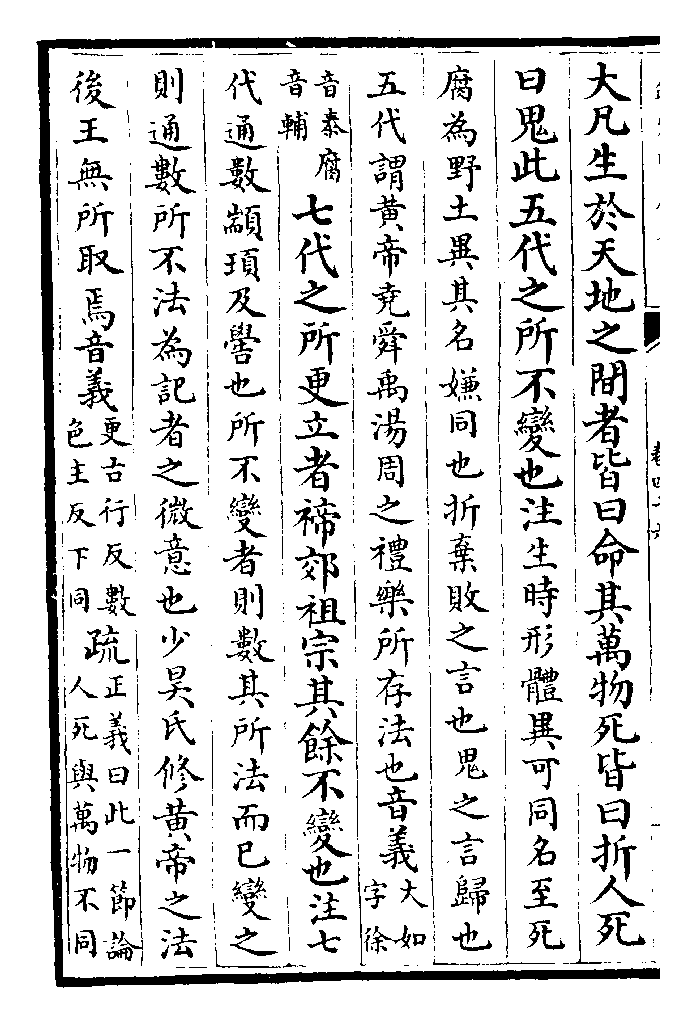 大凡生於天地之間者皆曰命其萬物死皆曰折人死
曰鬼此五代之所不變也注生時形體異可同名至死
腐為野土異其名嫌同也折棄敗之言也鬼之言歸也
五代謂黃帝堯舜禹湯周之禮樂所存法也音義大如字徐
音泰腐音輔七代之所更立者禘郊祖宗其餘不變也注七
代通數顓頊及嚳也所不變者則數其所法而已變之
則通數所不法為記者之微意也少昊氏修黃帝之法
後王無所取焉音義更古行反數色主反下同疏正義曰此一節論人死與萬物不同